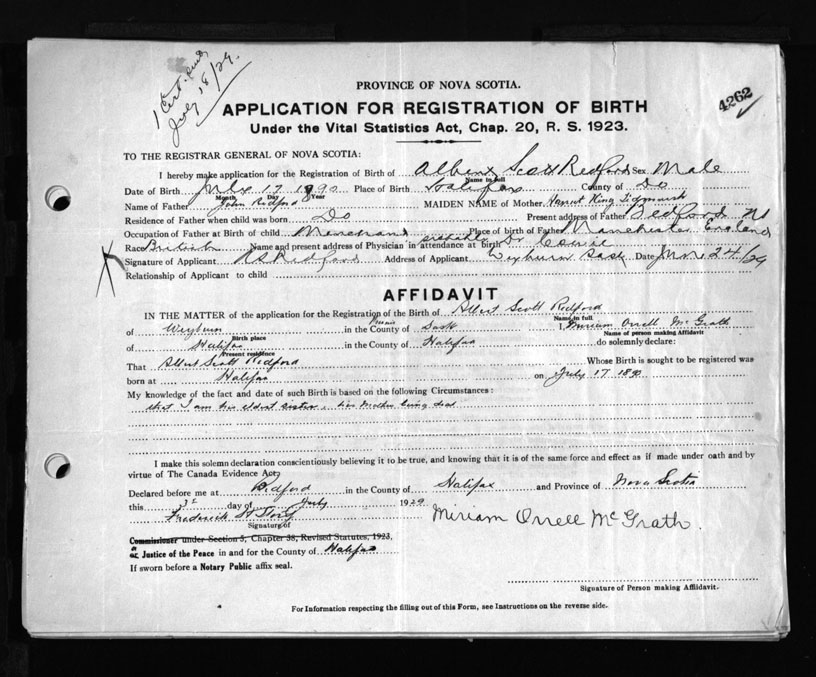 1 Cert. July 18/29.
4262
PROVINCE OF NOVA SCOTIA.
APPLICATION FOR REGISTRATION OF BIRTH
Under the Vital Statistics Act, Chap. 20, R. S. 1923.
TO THE REGISTRAR GENERAL OF NOVA SCOTIA:
I hereby make application for the Registration of Birth of Albert Scott Redford Sex Male
Name in full
Date of Birth July 17 1890 Place of Birth Halifax County of Do
Month Day Year
Name of Father John Redford MAIDEN NAME of Mother Harriet King
Residence of Father when child was born Do Present address of Father Bedford NS
Occupation of Father at Birth of child Merchand Place of birth of Father Manchester England
Race British Name and present address of Physician in attendance at birth probably Dr
Signature of Applicant A S Redford Address of Applicant Weyburn Sask Date June 24/29
Relationship of Applicant to child
AFFIDAVIT
IN THE MATTER of the application for the Registration of the Birth of Albert Scott Redford
Name in full
of Weyburn in the County of Sask I, Miriam Orrell McGrath
Birth place Name of person making Affidavit
of Halifax in the County of Halifax do solemnly declare:
Present residence
That Albert Scott Redford Whose Birth is sought to be registered was
born at Halifax on July 17 1890
My knowledge of the fact and date of such Birth is based on the following Circumstances:
that I am his eldest sister, his Mother being dead
I make this solemn declaration conscientiously believing it to be true, and knowing that it is of the same force and effect as if made under oath and by
virtue of The Canada Evidence Act,
Declared before me at Bedford in the County of Halifax and Province of Nova Scotia
this 3rd day of July 1929
Frederick Miriam Orrell McGrath.
Signature of
Commissioner under Section 5, Chapter 38, Revised Statutes, 1923,
or Justice of the Peace in and for the County of Halifax
If sworn before a Notary Public affix seal.
Signature of Person making Affidavit.
For Information respecting the filling out of this Form, see Instructions on the reverse side.